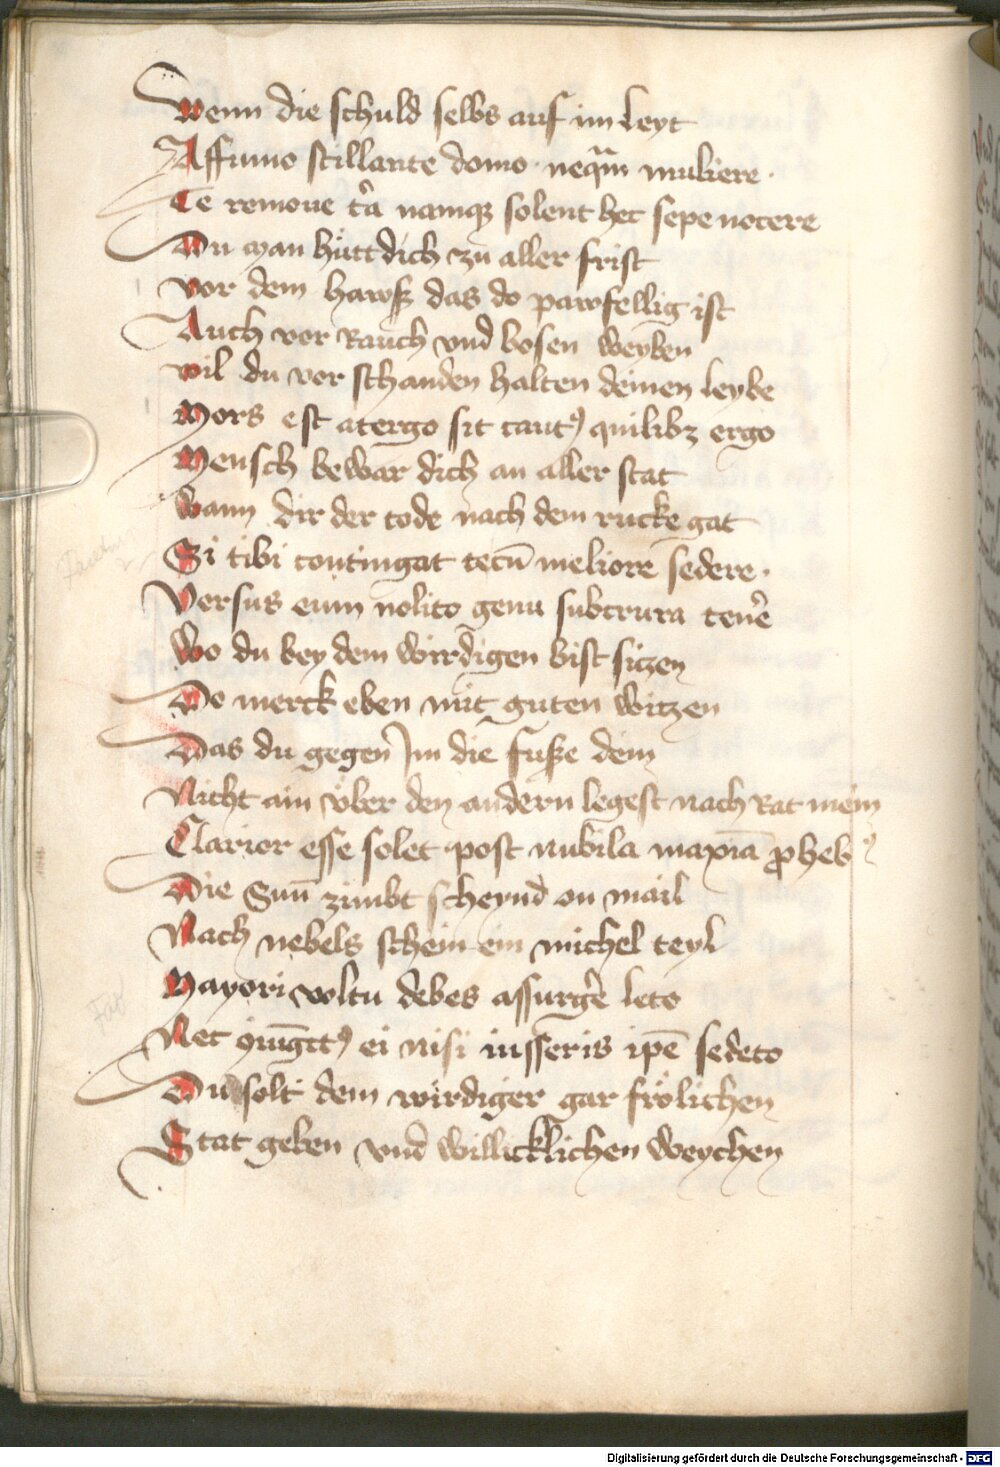 Wenn die schuld selbs auf im leyt
A ffumo stillante domo · neq̄m muliere ·
Te remoue t̄a namqꝫ solent hec sepe nocere
Du man hütt dich zu aller frist
Vor dem hawß das do pawfellig ist
Auch vor Rauch vnd bosen weyben
wil du vor schanden halten deinen leybe
Mors est atergo sit cautꝰ quilibꝫ ergo
Mensch bewar dich an aller stat
Wann dir der tode nach dem rucke gat
Si tibi contingat tecū meliore sedere ·
Versus eum nolito genu subcrura ten̄e
Wo du bey dem wirdigen bist siczen
Do merck eben mit guten witzen
Das du gegen Im die fusße dein
Nicht ain vber den andern legest nach Rat mein
Clarior esse solet post nubila maxīa phebꝰ
Die Sūn zimbt scheynd on mail
Nach nebels schein ein michel teyl
Mayori voltu debes assurḡe leto
Nec ꝯiūgctꝰ ei nisi iusseris ip̄e sedeto
Du solt dem wirdiger gar frölichen
Stat geben vnd willicklichen weychen
Digitalisierung gefördert durch die Deutsche Forschungsgemeinschaft - DFG